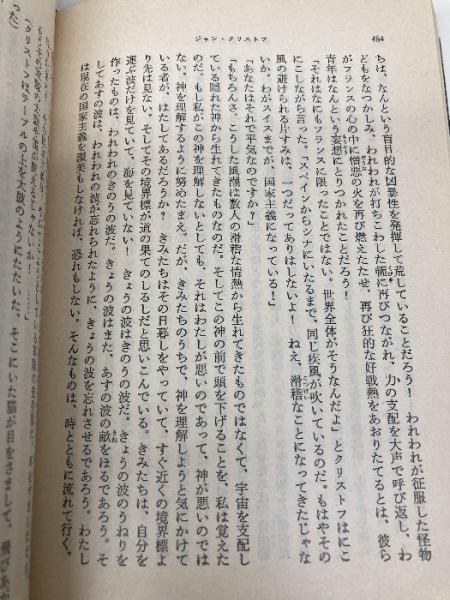 484
ジャン・クリストフ
ちは、なんという盲目的な凶暴性を発揮して荒していることだろう！　われわれが征服した怪物
どもをなつかしみ、われわれが打ちこわした軛に再びつながれ、力の支配を大声で呼び返し、わ
がフランスの心の中に憎悪の火を再び燃えたたせ、再び狂的な好戦熱をあおりたてるとは、彼ら
青年はなんという妄想にとりつかれたことだろう！
「それはなにもフランスに限ったことではない。世界全体がそうなんだよ」とクリストフはにこ
にこしながら言った。「スペインからシナにいたるまで、同じ疾風が吹いているのだ。もはやその
風の避けられる片すみは、一つだってありはしないよ！　ねえ、滑稽なことになってきたじゃな
いか。わがスイスまでが、国家主義になっている！」
「あなたはそれで平気なのですか？」
「もちろんさ、こうした風潮は数人の滑稽な情熱から生れてきたものではなくて、宇宙を支配し
ている隠れた神から生れてきたものなのだ。そしてこの神の前で頭を下げることを、私は覚えた
のだ。もし私がこの神を理解しないとしても、それはわたしが悪いのであって、神が悪いのでは
ない。神を理解するように努めたまえ。だが、きみたちのうちで、神を理解しようと気にかけて
いる者が、はたしてあるだろうか？　きみたちはその日暮しをやっていて、すぐ近くの境界標よ
り先は見ない。そしてその境界標が道の果てのしるしだと思いこんでいる。きみたちは、自分を
運ぶ波だけを見ていて、海を見ていない！　きょうの波はきのうの波だ。きょうの波のうねりを
作ったものは、われわれのきのうの波だ。きょうの波はまた、あすの波の畝をほるであろう。そ
してあすの波は、われわれの波が忘れられたように、きょうの波を忘れさせるであろう。わたし
は現在の国家主義を讃美もしなければ、恐れもしない。そんなものは、時とともに流れて行く。
クリストフはテーブルの上を太鼓のようにたたいた。そこにいた猫が目をさまして、飛び
った。